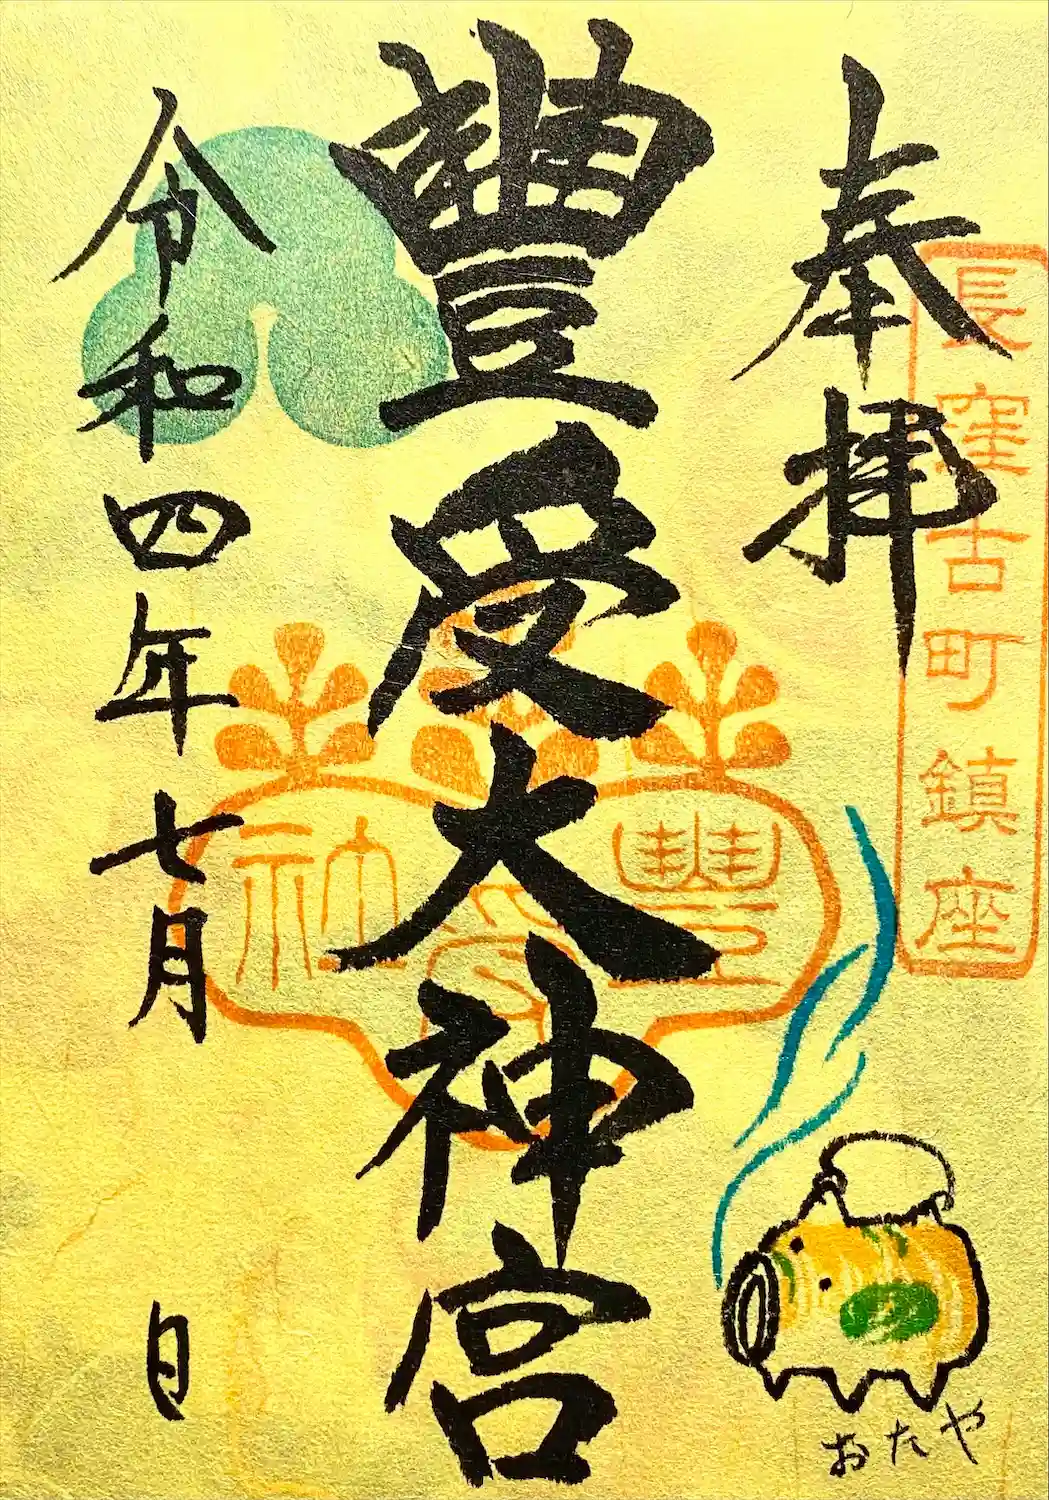 奉拝
長窪古町鎮座
豊受大神宮
豊受社
令和四年七月 日
おたや